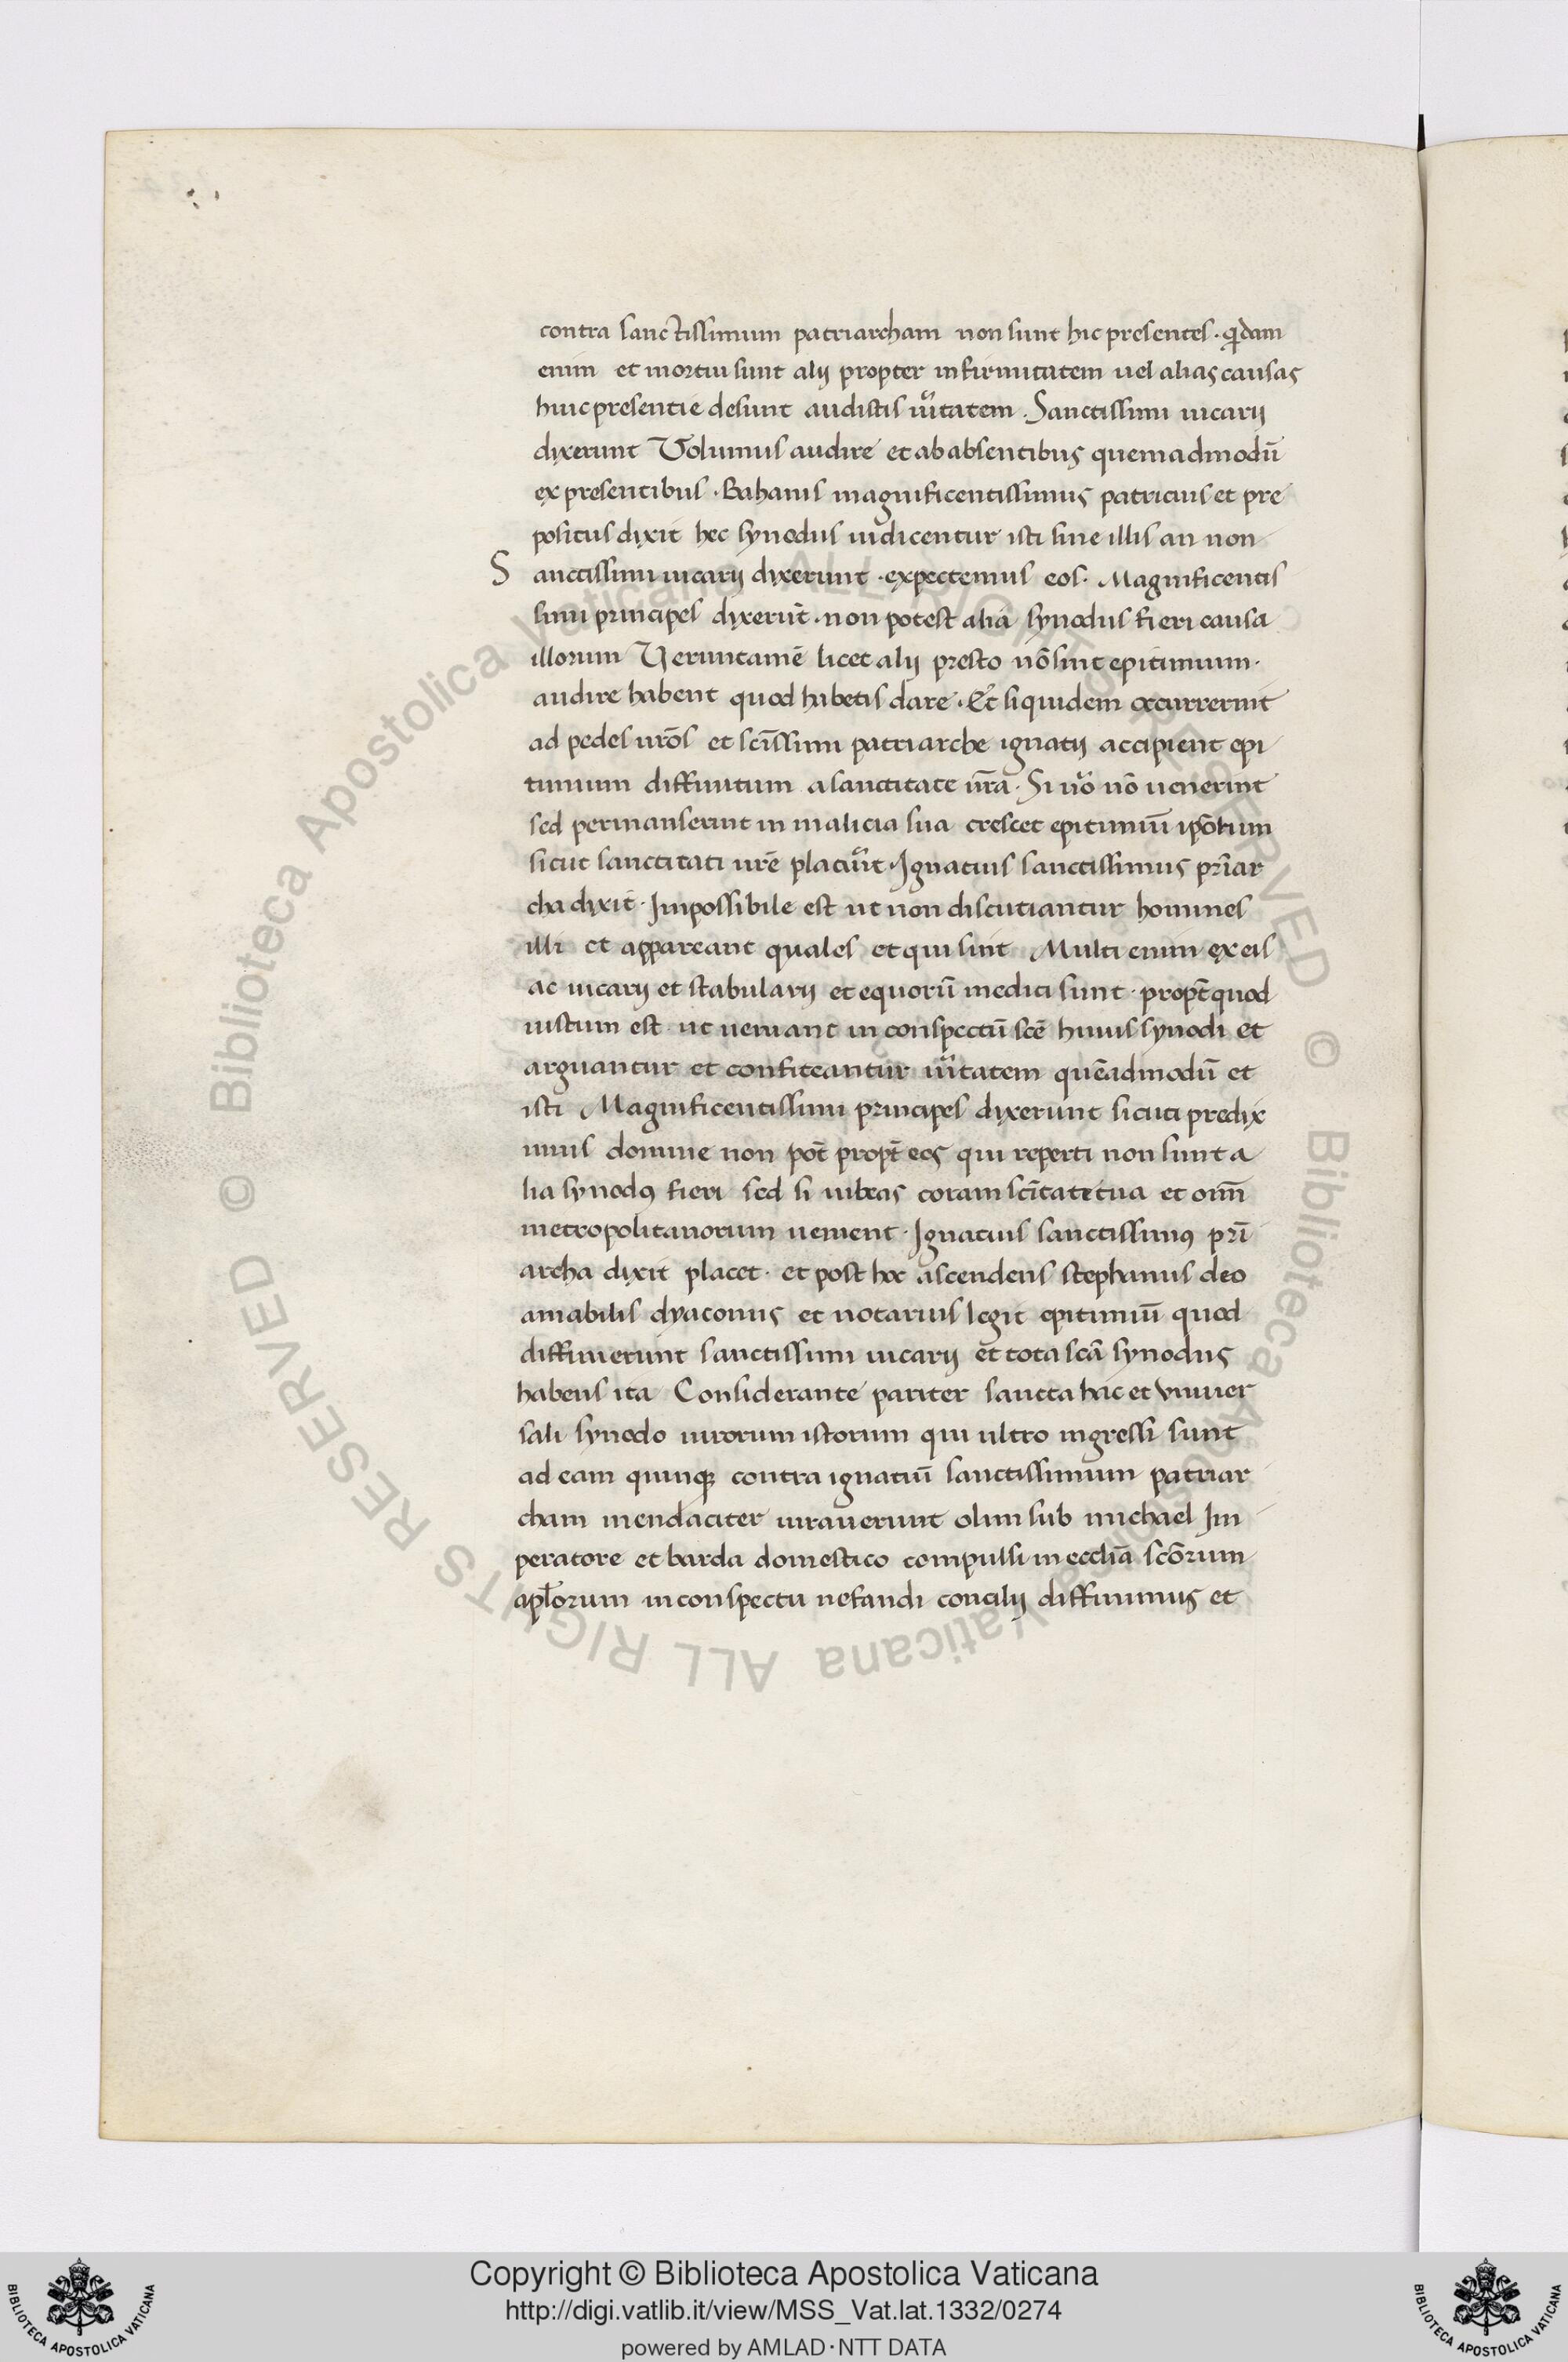 contra sanctissimum patriarcham non sunt hic presentes · qͥdam
enim et mortui sunt alij propter infirmitatem uel alias causas
huic presentie desunt audistis uͥitatem . Sanctissimi uicarij
dixerunt Volumus audire et ab absentibus quemadmodū
ex presentibus . Bahanis magnificentissimus patricius et pre
positus dixit hec synodus iudicentur isti sine illis an non
S anctissimi uicarij dixerunt · expectemus eos · Magnificentis
simi principes dixerūt · non potest alia synodus fieri causa
illorum Veruntamē licet alij presto nō sint epitimium ·
audire habent quod habetis dare · Et siquidem occurrerint
ad pedes urōs et scīssimi patriarche ignatij accipient epi
timium diffinitum a sanctitate ur̄a · Si uͦo nō uenerint
sed permanserint in malicia sua crescet epitimiū ipōrum
sicut sanctitati urē placuͥt · Ignatius sanctissimus pr̄iar
cha dixit · Impossibile est ut non discutiantur homines
illi et appareant quales et qui sint Multi enim ex eis
ac uicarij et stabularij et equorū medici sunt · propt̄ quod
iustum est ut ueniant in conspectū scē huius synodi et
arguantur et confiteantur uͥitatem quēadmodū et
isti Magnificentissimi principes dixerunt sicuti predix
imus domine non pot̄ propt̄ eos qui reperti non sunt a
lia synodꝰ fieri sed si iubeas coram scītate tua et oīm
metropolitanorum uenient · Ignatius sanctissimꝰ prī
archa dixit placet · et post hoc ascendens stephanus deo
amabilis dyaconus et notarius legit epitimiū quod
diffinierunt sanctissimi uicarij et tota scā synodus
habens ita Considerante pariter sancta hac et vniuer
sali synodo uirorum istorum qui ultro ingressi sunt
ad eam quinqꝫ contra ignatiū sanctissimum patriar
cham mendaciter iurauerunt olim sub michael Im
peratore et barda domestico compulsi in eccliā scōrum
apłorum in conspectu nefandi concilij diffinimus et
© Biblioteca Apostolica Vaticana ALL RIGHTS RESERVED © Biblioteca Apostolica Vaticana ALL RIGHTS RESERVED
BIBLIOTECA APOSTOLICA VATICANA
Copyright © Biblioteca Apostolica Vaticana
http://digi.vatlib.it/view/MSS_Vat.lat.1332/0274
powered by AMLAD·NTT DATA
BIBLIOTECA APOSTOLICA VATICANA